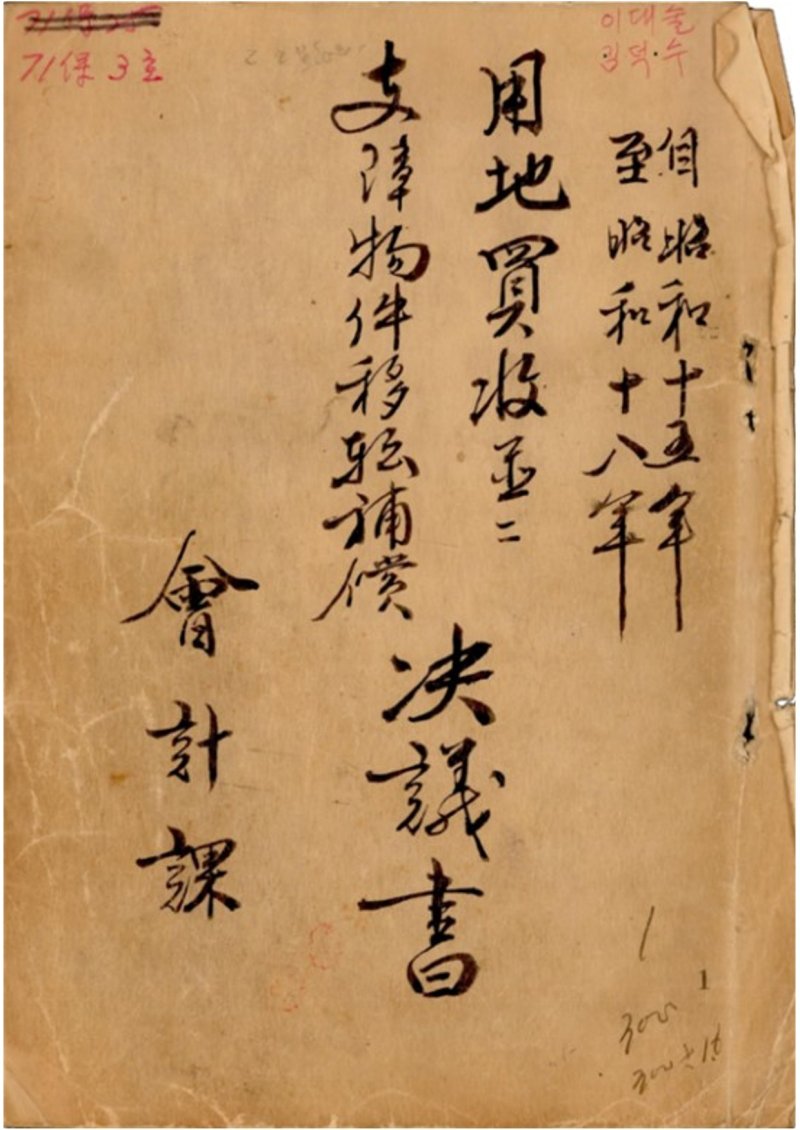 71保 3호
이대술
김덕수
自昭和十五年
至昭和十八年
用地買收並ニ
支障物件移転補償
決議書
會計課
1
1
300